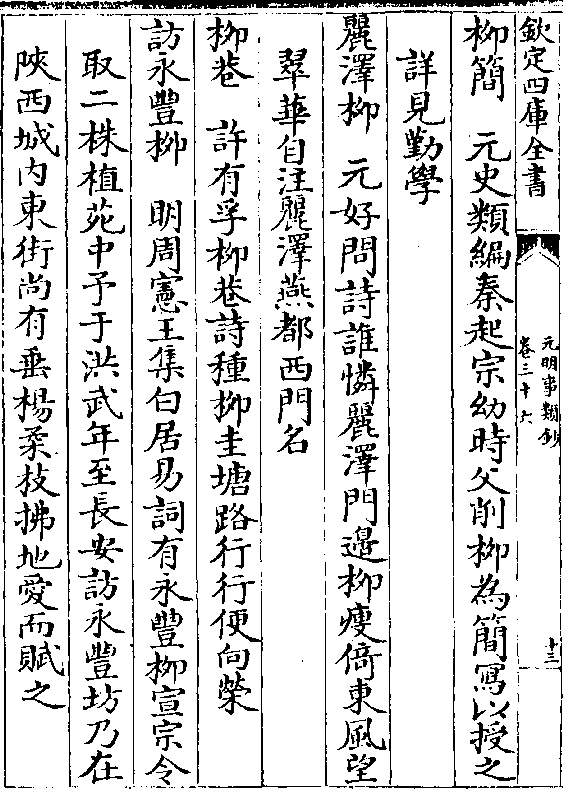 欽定四庫全書
元明事類鈔
卷三十六
十三
柳簡　元史類編秦起宗幼時父削柳為簡寫以授之
詳見勤學
麗澤柳　元好問詩誰憐麗澤門邉柳瘦倚東風望
翠華自注麗澤燕都西門名
柳巷　許有孚柳巷詩種柳圭塘路行行便向榮
訪永豐柳　明周憲王集白居易詞有永豐柳宣宗令
取二株植苑中予于洪武年至長安訪永豐坊乃在
陜西城内東街尚有垂楊柔枝拂地愛而賦之